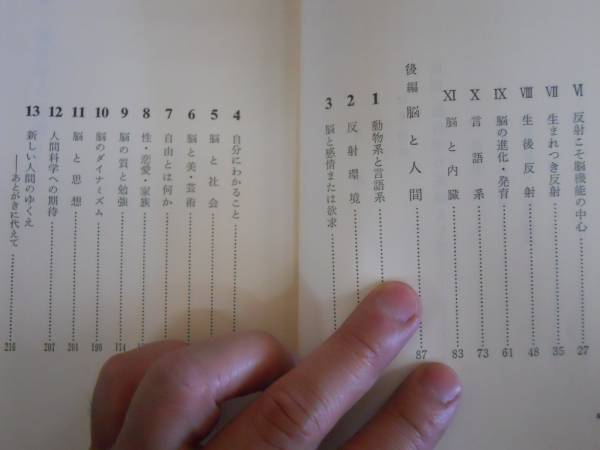 Ⅵ 反射こそ脳機能の中心 27
Ⅶ 生まれつき反射 35
Ⅷ 生後反射 48
Ⅸ 脳の進化・発育 61
Ⅹ 言語系 73
Ⅺ 脳と内臓 83
後編 脳と人間 87
1 動物系と言語系
2 反射環境
3 脳と感情または欲求
4 自分にわかること
5 脳と社会
6 脳と美・芸術
7 自由とは何か
8 性・恋愛・家族
9 脳の質と勉強
10 脳のダイナミズム 190
11 脳と思想 201
12 人間科学への期待 207
13 新しい人間のゆくえ
——あとがきに代えて 216